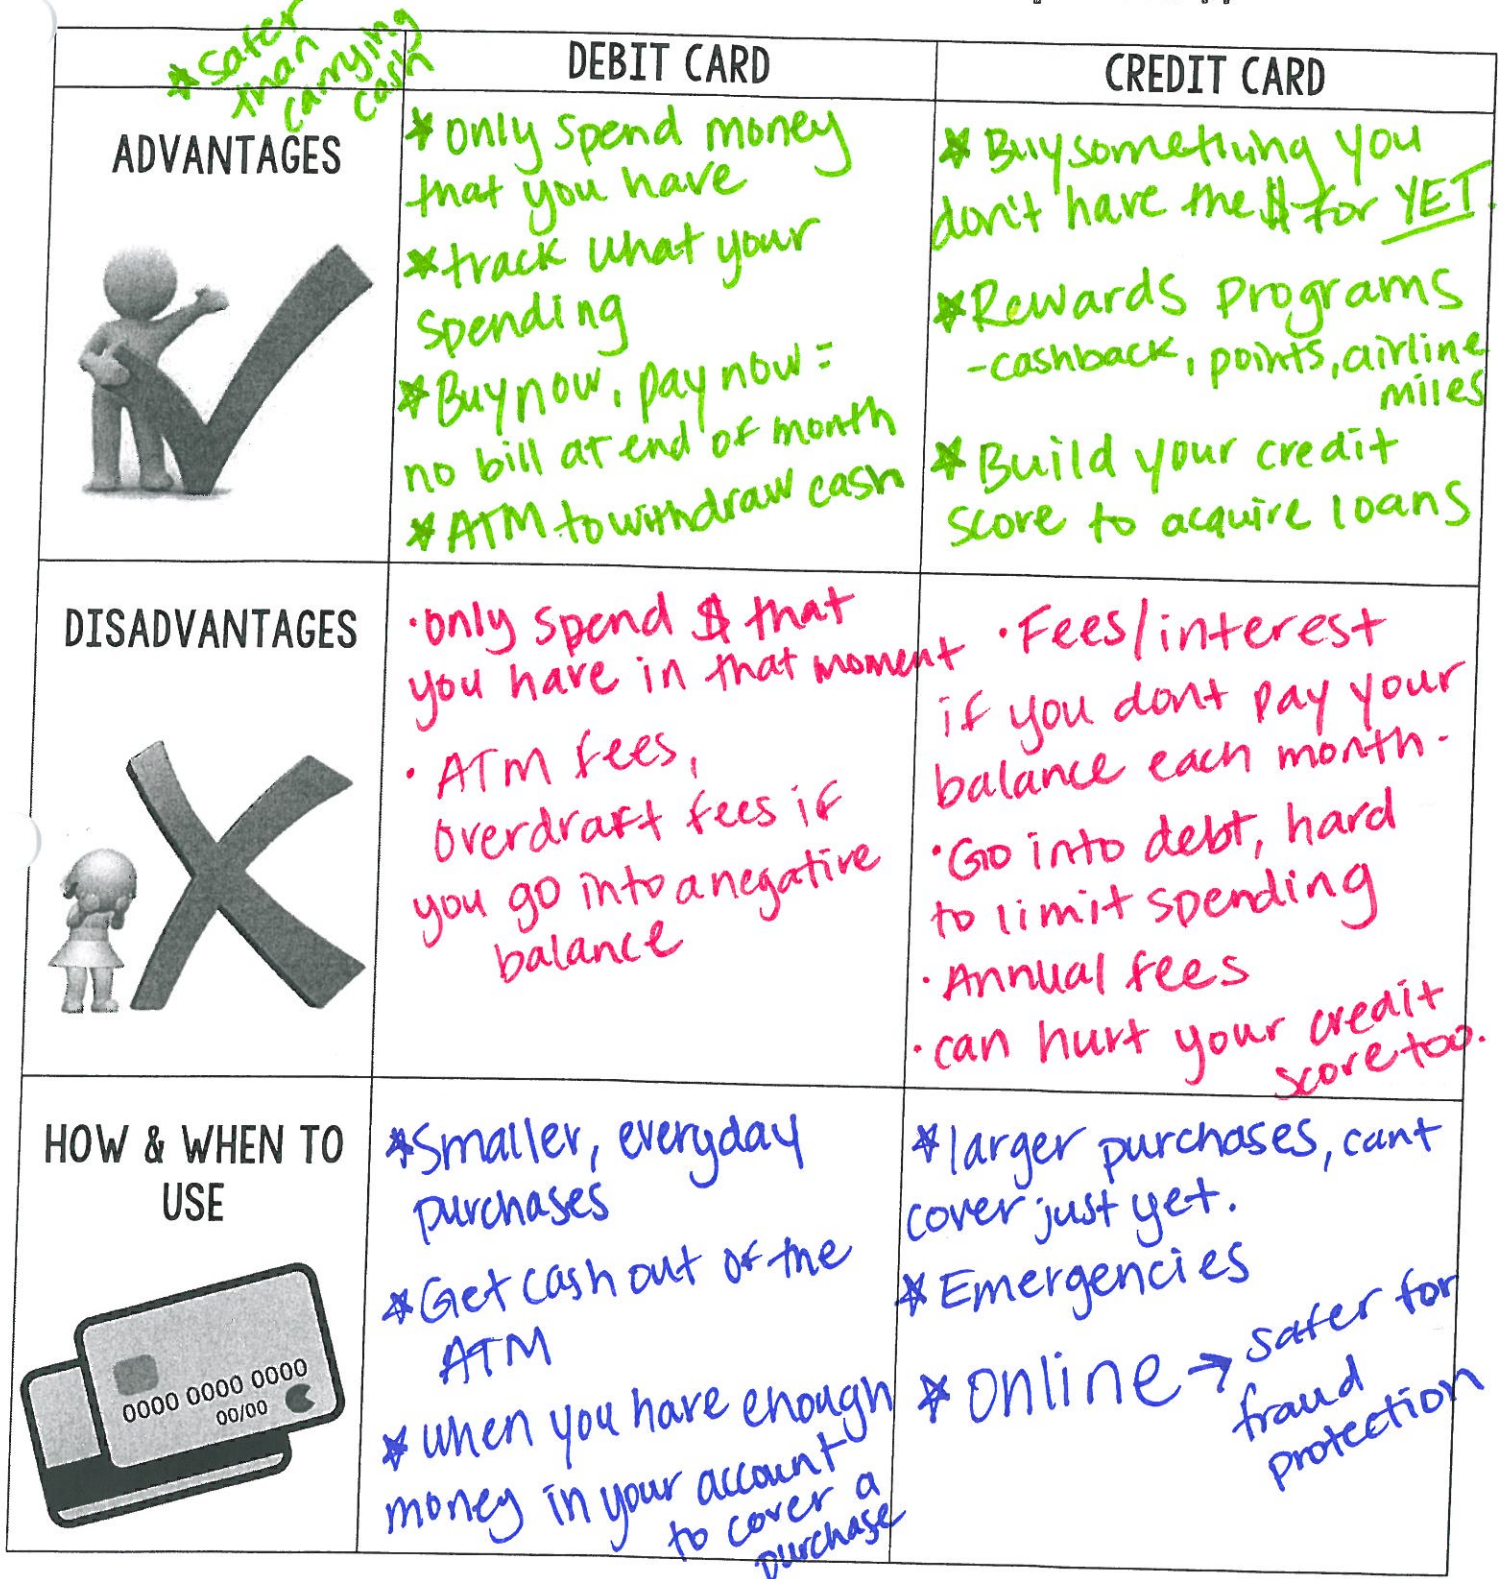 * Safer
than
carrying
cash
DEBIT CARD
CREDIT CARD
ADVANTAGES
* Only spend money
that you have
* track what your
spending
* Buy now, pay now =
no bill at end of month
* ATM to withdraw cash
* Buy something you
don't have the $ for YET.
* Rewards programs
- cashback, points, airline
miles
* Build your credit
score to acquire loans
DISADVANTAGES
· Only spend $ that
you have in that moment
· ATM fees,
overdraft fees if
you go into a negative
balance
· Fees/interest
if you dont pay your
balance each month.
· Go into debt, hard
to limit spending
· Annual fees
· can hurt your credit
score too.
HOW & WHEN TO
USE
0000 0000 0000
00/00
* Smaller, everyday
purchases
* Get cash out of the
ATM
* when you have enough
money in your account
to cover a
purchase
* larger purchases, cant
cover just yet.
* Emergencies
* Online → safer for
fraud
protection